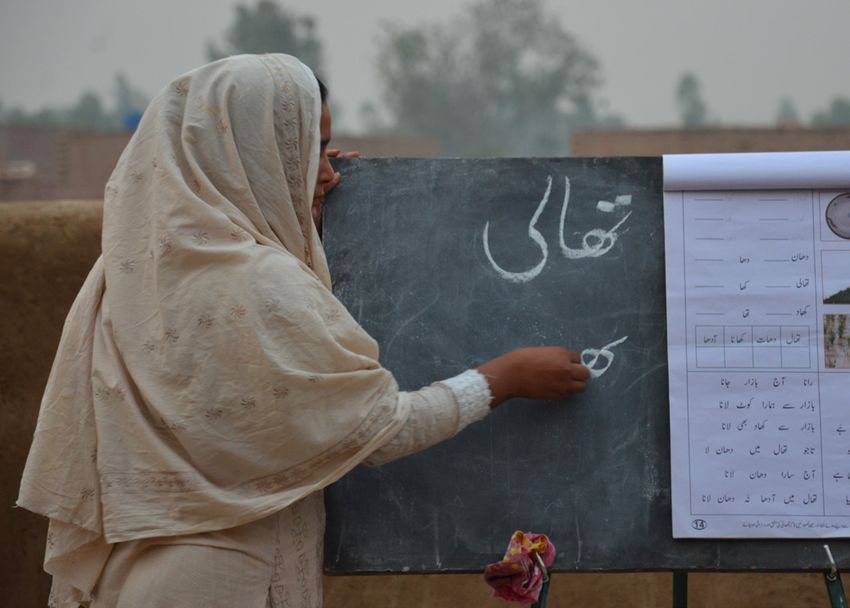 تھالی
بھ
دھان دھا
تھالی کھا
کھاد تھا
تھال دھات کھانا آدھا
رانا آج بازار جانا
بازار سے ہمارا کوٹ لانا
بازار سے کھاد بھی لانا
تاجو تھال میں دھان لا
آج سارا دھان لانا
تھال میں آدھا نہ دھان لانا
14